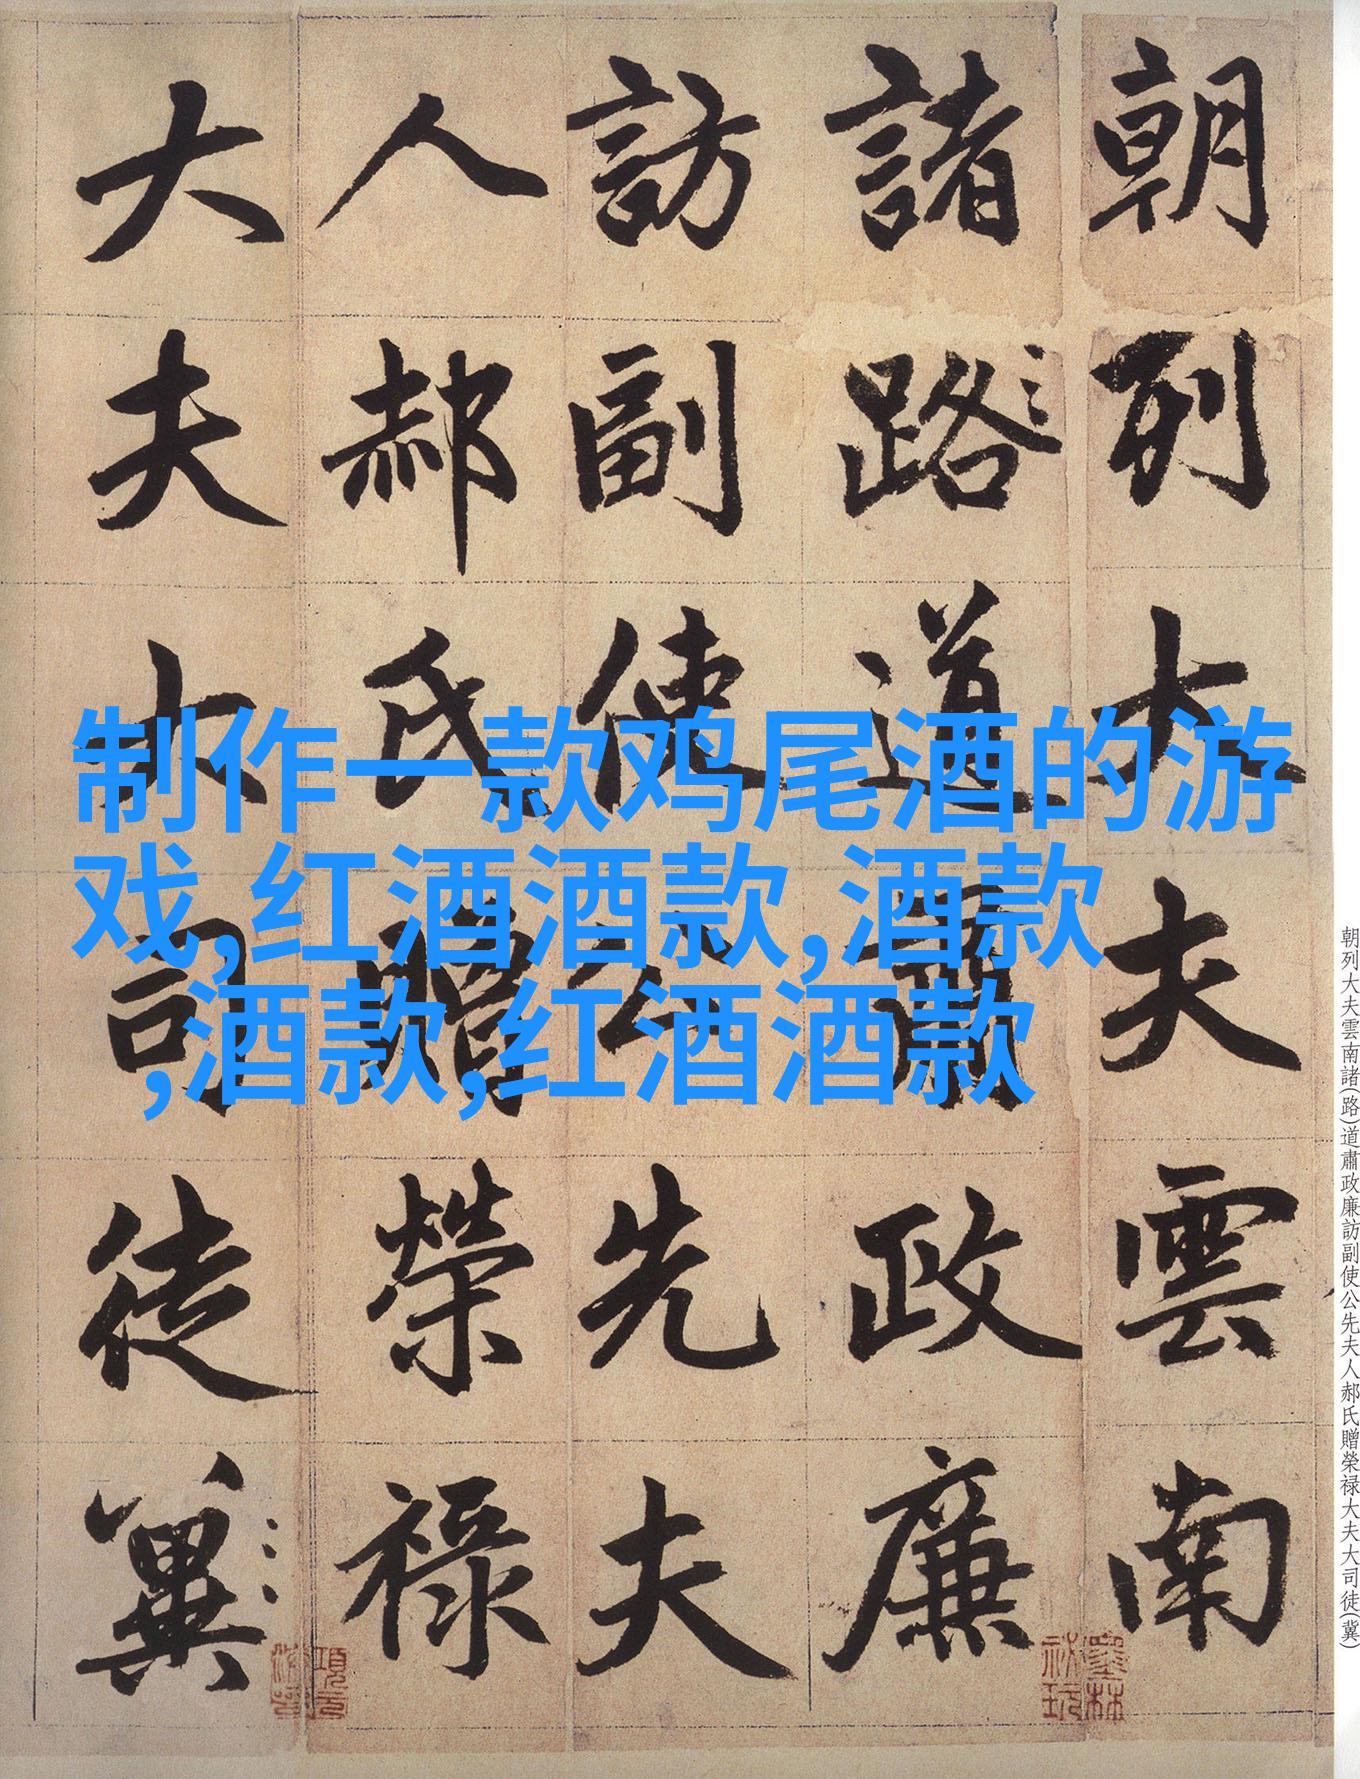 朝列大夫雲南
諸路道肅政廉
訪副使公先夫
人郝氏贈榮祿
大夫大司徒冀
制作一款鸡尾酒的游
戏,红酒酒款,酒款
,酒款,红酒酒款
朝列大夫雲南諸(路)道肅政廉訪副使公先夫人郝氏贈榮禄大夫大司徒(冀)